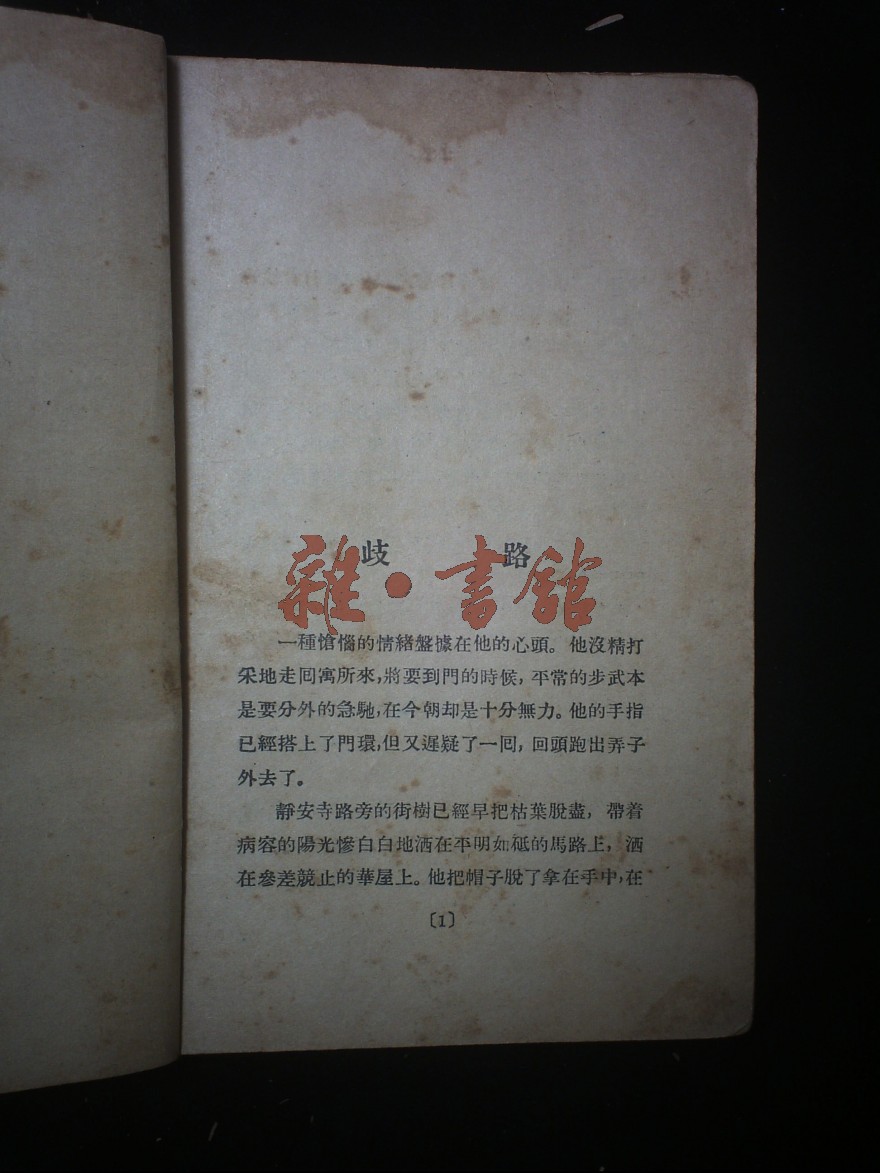 歧 路
雜·書館
一種愴惱的情緒盤據在他的心頭。他沒精打
釆地走囘寓所來,將要到門的時候,平常的步武本
是要分外的急馳,在今朝却是十分無力。他的手指
已經搭上了門環,但又遲疑了一囘,回頭跑出弄子
外去了。
靜安寺路旁的街樹已經早把枯葉脫盡,帶着
病容的陽光慘白白地洒在平明如砥的馬路上,洒
在參差競止的華屋上。他把帽子脫了拿在手中,在
〔1〕